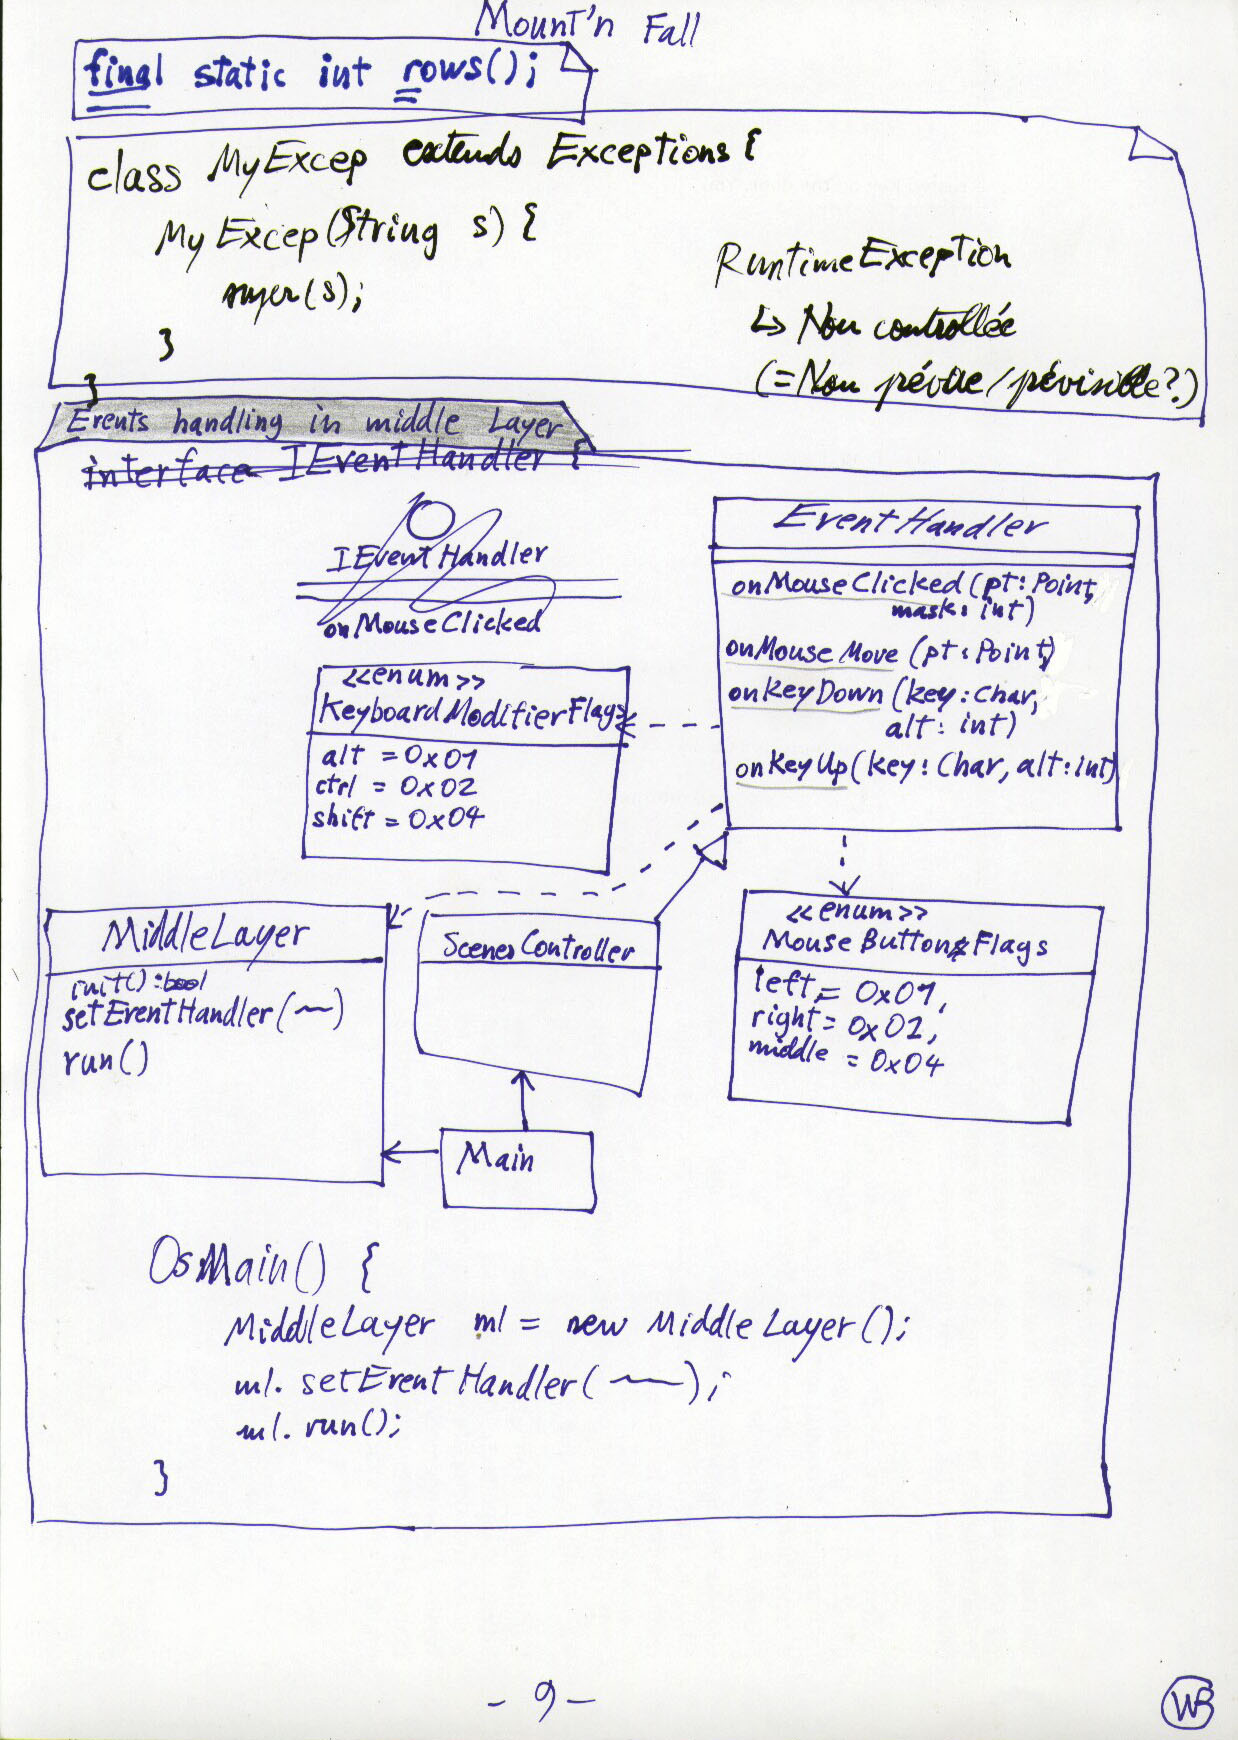 Mount'n Fall
final static int rows();
class MyExcep extends Exceptions {
MyExcep(String s) {
super(s);
}
}
RuntimeException
↳ Non controllée
(=Non prévue/prévisible?)
Events handling in middle Layer
interface IEventHandler {
IEventHandler
onMouseClicked
EventHandler
onMouseClicked (pt: Point,
mask: int)
onMouseMove (pt: Point)
onKeyDown (key: Char,
alt: int)
onKeyUp (key: Char, alt: int)
<<enum>>
KeyboardModifierFlags
alt = 0x01
ctrl = 0x02
shift = 0x04
MiddleLayer
init(): bool
setEventHandler(~)
run()
ScenesController
<<enum>>
MouseButtonsFlags
left = 0x01,
right = 0x02,
middle = 0x04
Main
OsMain() {
MiddleLayer ml = new MiddleLayer();
ml. setEventHandler(~);
ml. run();
}
- 9 -
WB